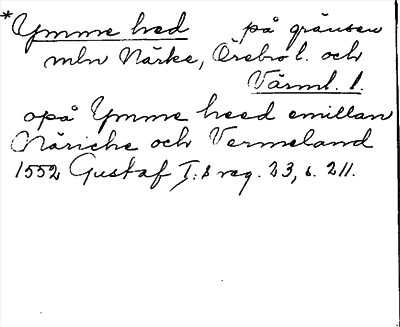 *Ymme hed på gränsen
mln Närke, Örebro l. och
Värml. l.
opå Ymme heed emillan
Näriche och Vermeland
1552 Gustaf I:s reg. 23, s. 211.